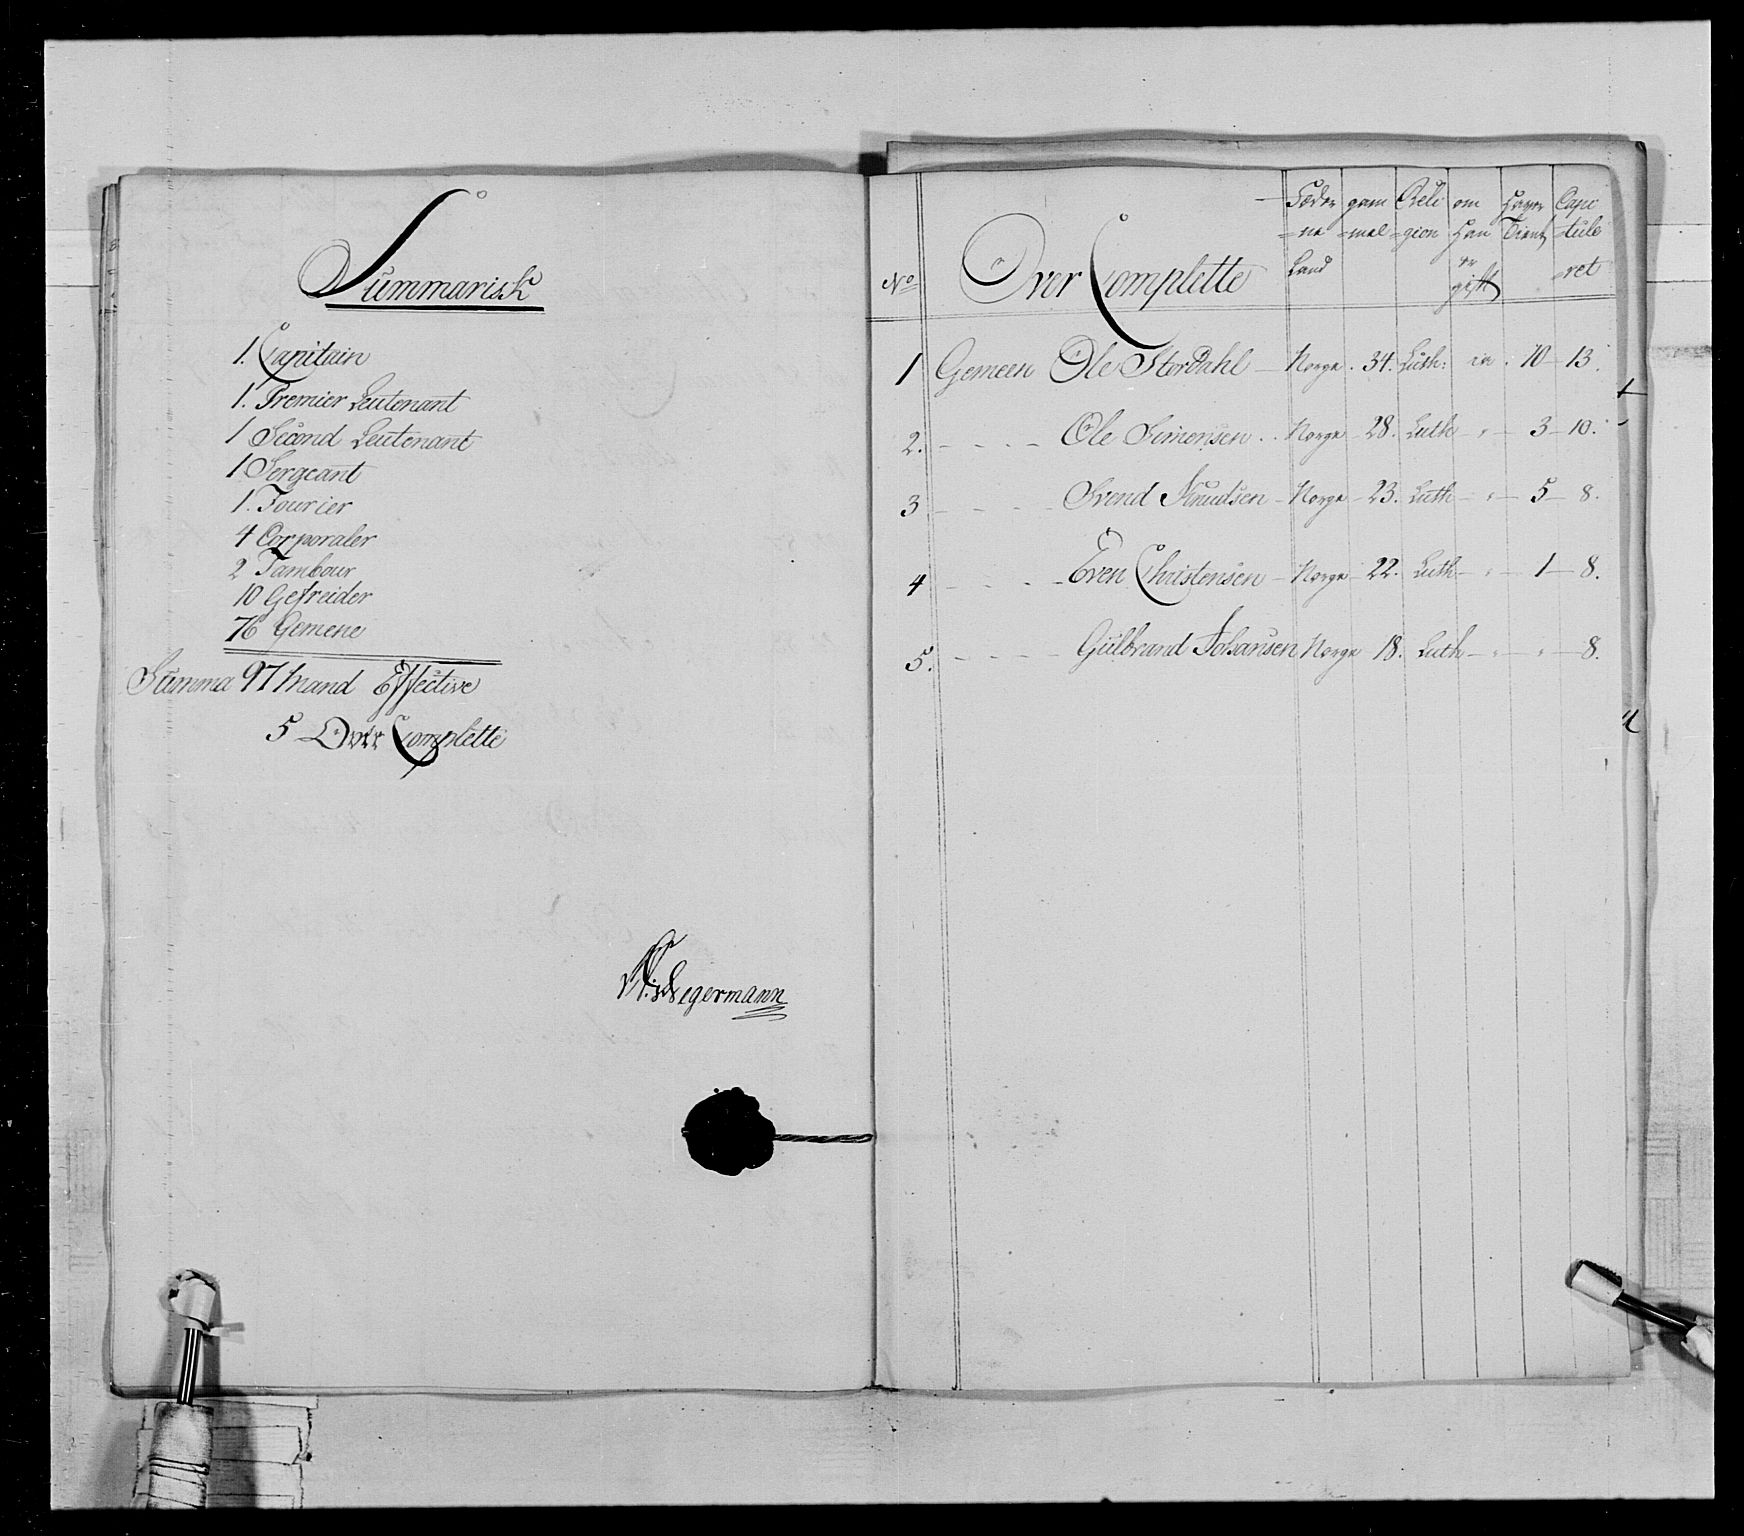 Summarisk
1. Capitain
1. Premier Leutenant
1 Second Leutenant
1 Sergeant
1. Fourier
4 Corporaler
2 Tambour
10 Gefreider
76 Gemene
Summa 97 Mand Effective
5 Over Complette
Segermann
No Over Complette Fæderne Land gammel Religion om Han er gift Haver Tient Capituleret
1 Gemeen Ole Stordahl Norge 34. Luth: ia 10 13.
2. Ole Simensen Norge 28. Luth " 3 10.
3 Svend Knudsen Norge 23. Luth " 5 8.
4 Even Christensen Norge 22. Luth " 1 8.
5. Gulbrand Johansen Norge 18. Luth " " 8.